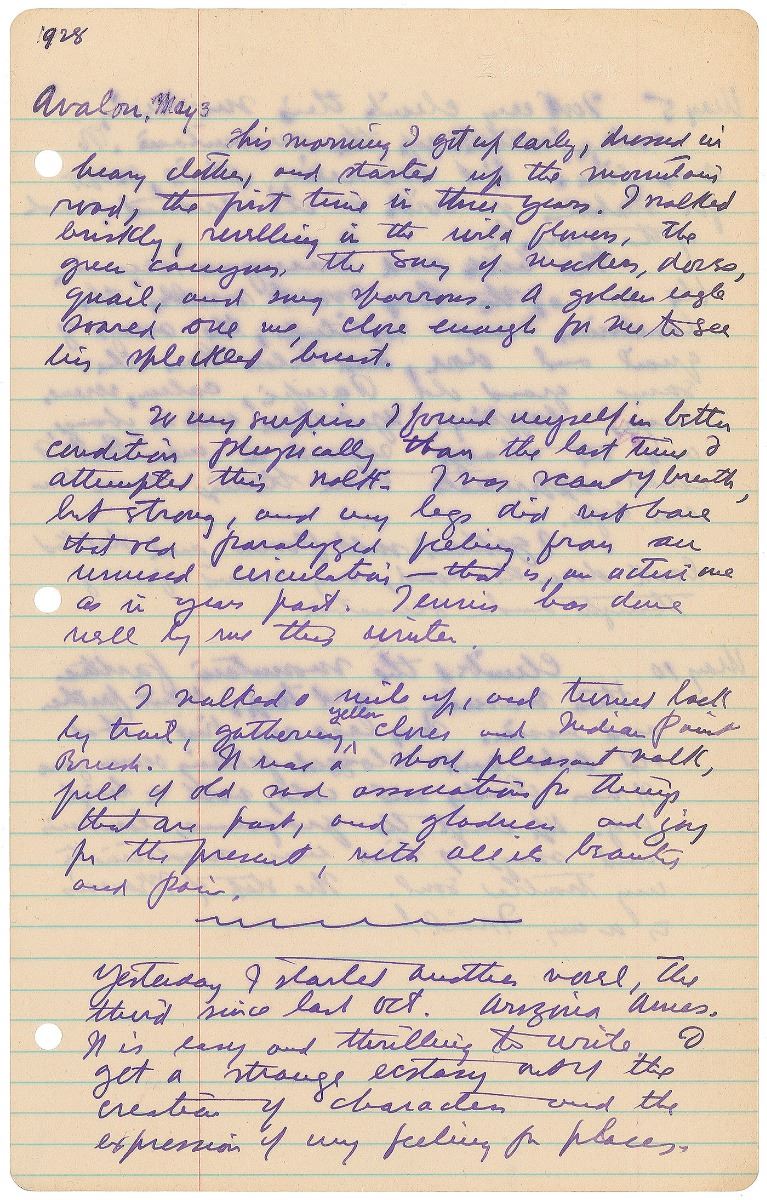 1928
Avalon, May 3
This morning I got up early, dressed in
heavy clothes, and started up the mountain
road, the first time in three years. I walked
briskly, revelling in the wild flowers, the
green canyons, the song of mockers, doves,
quail, and song sparrows. A golden eagle
soared over me, close enough for me to see
his speckled breast.
To my surprise I found myself in better
condition physically than the last time I
attempted this walk. I was scant of breath,
but strong, and my legs did not have
that old paralyzed feeling from an
unused circulation — that is, an active one
as in years past. Tennis has done
well by me this winter.
I walked a mile up, and turned back
by trail, gathering yellow clovers and Indian Paint
Brush. It was a short pleasant walk,
full of old sad associations for things
that are past, and gladness and joy
for the present, with all its beauty
and pain.
Yesterday I started another novel, the
third since last Oct. Arizona Ames.
It is easy and thrilling to write. I
get a strange ecstasy out of the
creation of characters and the
expression of my feeling for places.